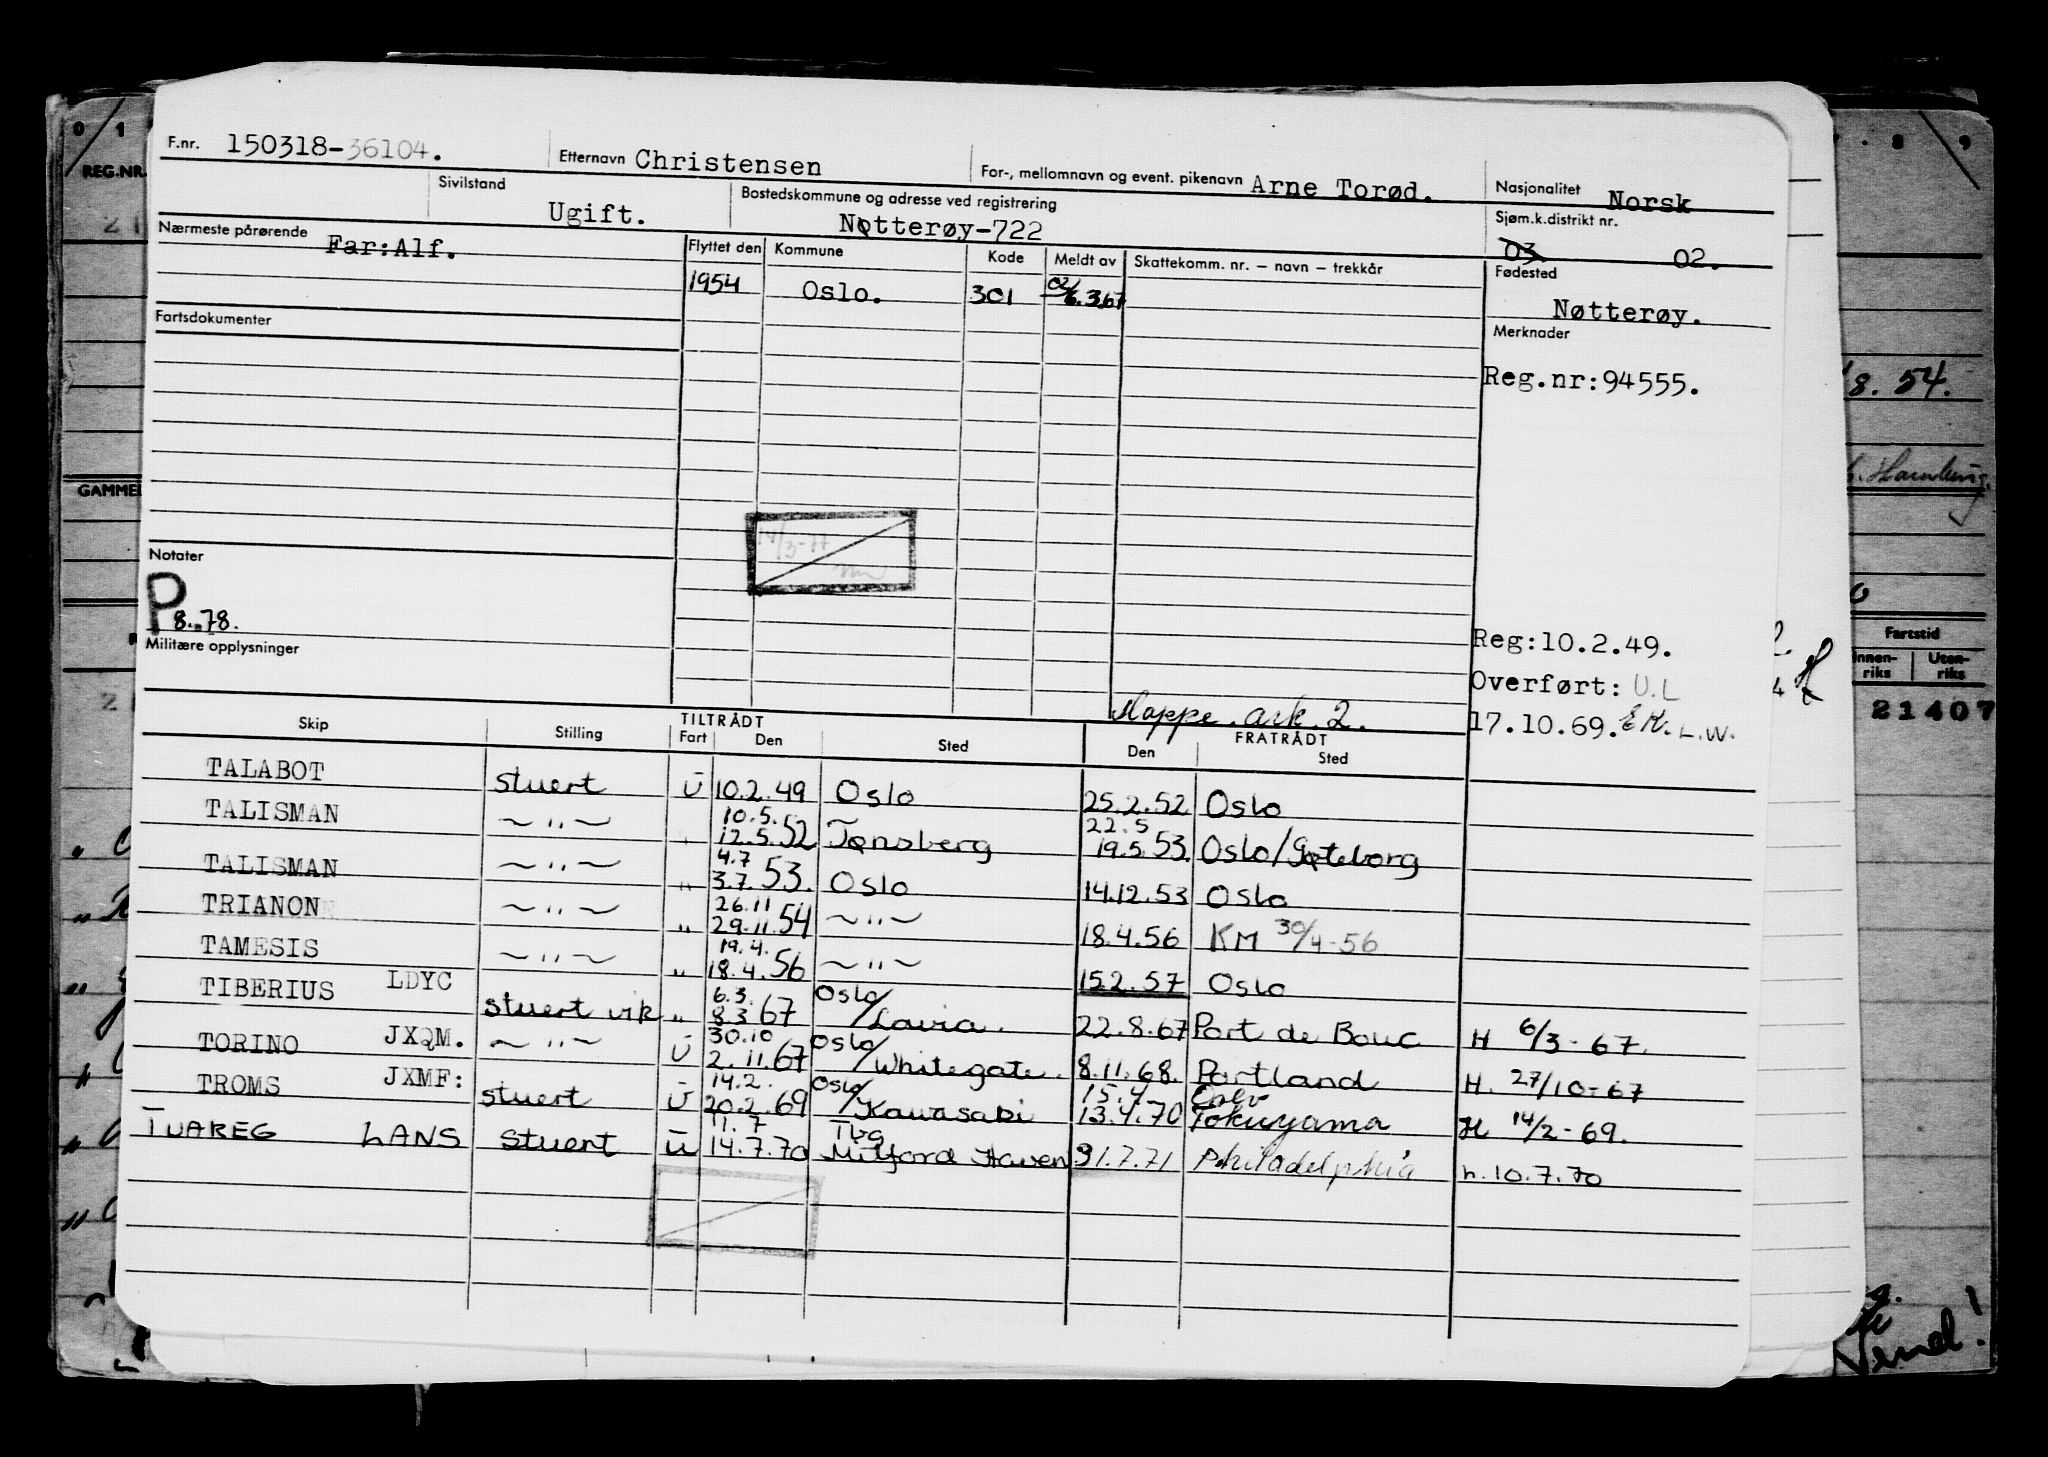 F.nr. 150318-36104. Etternavn Christensen For-, mellomnavn og event. pikenavn Arne Torød. Nasjonalitet Norsk
Sivilstand Ugift. Bostedskommune og adresse ved registrering Nøtterøy-722 Sjøm.k.distrikt nr. 03 02.
Nærmeste pårørende Far:Alf. Flyttet den Kommune Kode Meldt av Skattekomm. nr. – navn – trekkår Fødested Nøtterøy.
1954 Oslo. 301 02/6.3.67
Fartsdokumenter
Merknader
Reg.nr:94555.
14/3-77
Notater
P 8.78.
Militære opplysninger
Reg:10.2.49.
Overført: U.L
17.10.69. EK. L.W.
Mappe. ark. 2.
TILTRÅDT FRATRÅDT
Skip Stilling Fart Den Sted Den Sted
TALABOT stuert U 10.2.49 Oslo 25.2.52 Oslo
TALISMAN ~ " ~ " 10.5. 12.5.52 Tønsberg 22.5 19.5.53. Oslo/Gøteborg
TALISMAN ~ " ~ " 4.7 3.7.53. Oslo 14.12.53 Oslo
TRIANON ~ " ~ " 26.11 29.11.54 ~ " ~ 18.4.56 KM 30/4-56
TAMESIS ~ " ~ " 19.4. 18.4.56 ~ " ~ 15.2.57 Oslo
TIBERIUS LDYC stuert vik " 6.3. 8.3.67 Oslo/Lavia. 22.8.67 Port de Bouc H 6/3-67.
TORINO JXQM. ~ " ~ U 30.10 2.11.67 Oslo/Whitegate. 8.11.68. Portland H. 27/10-67
TROMS JXMF: stuert U 14.2. 20.2.69 Oslo/Kawasaki 15.4. 13.4.70 Oslo Tokuyama H 14/2-69.
TUAREG LANS stuert U 11.7 14.7.70 Tbg Milford Haven 31.7.71 Philadelphia h. 10.7.70
0 1
REG.NR.
GAMMEL
8 9
8. 54.
Hamburg.
Fartstid
Innen-riks Uten-riks
21407
Vend!